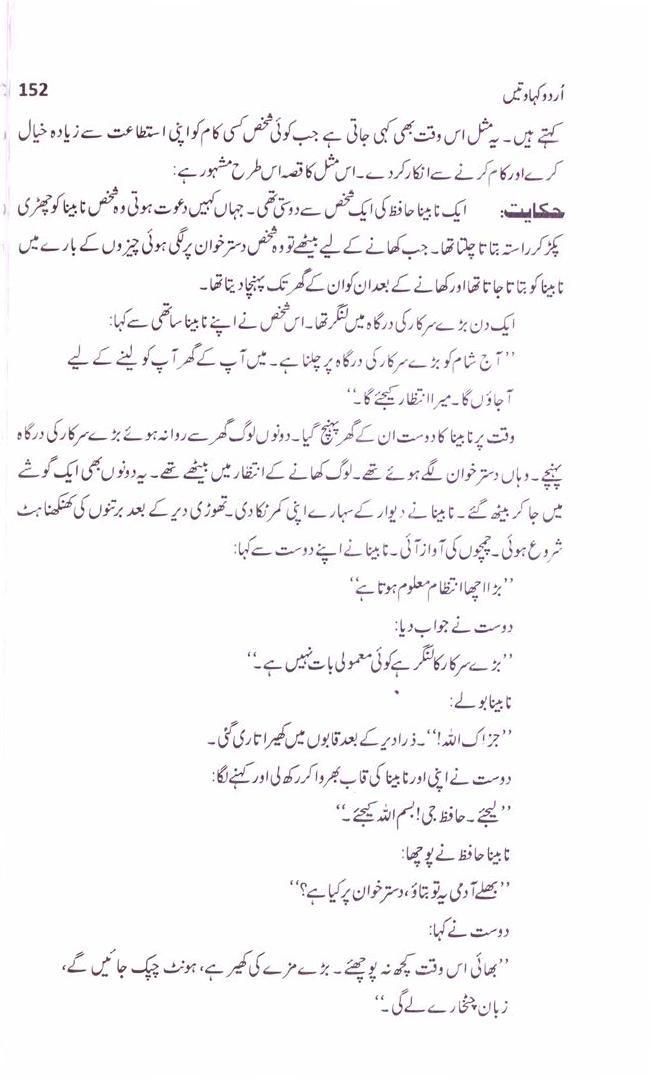 اُردو کہاوتیں 152
کہتے ہیں۔ یہ مثل اس وقت بھی کہی جاتی ہے جب کوئی شخص کسی کام کو اپنی استطاعت سے زیادہ خیال
کرے اور کام کرنے سے انکار کر دے۔ اس مثل کا قصہ اس طرح مشہور ہے:
حکایت: ایک نابینا حافظ کی ایک شخص سے دوستی تھی۔ جہاں کہیں دعوت ہوتی وہ شخص نابینا کو چھڑی
پکڑ کر راستہ بتاتا چلتا تھا۔ جب کھانے کے لیے بیٹھے تو وہ شخص دسترخوان پر لگی ہوئی چیزوں کے بارے میں
نابینا کو بتاتا جاتا تھا اور کھانے کے بعد ان کو ان کے گھر تک پہنچا دیتا تھا۔
ایک دن بڑے سرکار کی درگاہ میں لنگر تھا۔ اس شخص نے اپنے نابینا ساتھی سے کہا:
’’آج شام کو بڑے سرکار کی درگاہ پر چلنا ہے۔ میں آپ کے گھر آپ کو لینے کے لیے
آجاؤں گا۔ میرا انتظار کیجئے گا۔‘‘
وقت پر نابینا کا دوست ان کے گھر پہنچ گیا۔ دونوں لوگ گھر سے روانہ ہوئے بڑے سرکار کی درگاہ
پہنچے۔ وہاں دسترخوان لگے ہوئے تھے۔ لوگ کھانے کے انتظار میں بیٹھے تھے۔ یہ دونوں بھی ایک گوشے
میں جا کر بیٹھ گئے۔ نابینا نے دیوار کے سہارے اپنی کمر ٹکا دی۔ تھوڑی دیر کے بعد برتنوں کی کھنکھناہٹ
شروع ہوئی۔ چمچوں کی آواز آئی۔ نابینا نے اپنے دوست سے کہا:
’’بڑا اچھا انتظام معلوم ہوتا ہے‘‘
دوست نے جواب دیا:
’’بڑے سرکار کا لنگر ہے کوئی معمولی بات نہیں ہے۔‘‘
نابینا بولے:
’’جزاک اللہ!‘‘۔ ذرا دیر کے بعد قابوں میں کھیر اتاری گئی۔
دوست نے اپنی اور نابینا کی قاب بھروا کر رکھ لی اور کہنے لگا:
’’لیجئے۔ حافظ جی! بسم اللہ کیجئے۔‘‘
نابینا حافظ نے پوچھا:
’’بھلے آدمی یہ تو بتاؤ، دسترخوان پر کیا ہے؟‘‘
دوست نے کہا:
’’بھائی اس وقت کچھ نہ پوچھئے۔ بڑے مزے کی کھیر ہے، ہونٹ چپک جائیں گے،
زبان چٹخارے لے گی۔‘‘